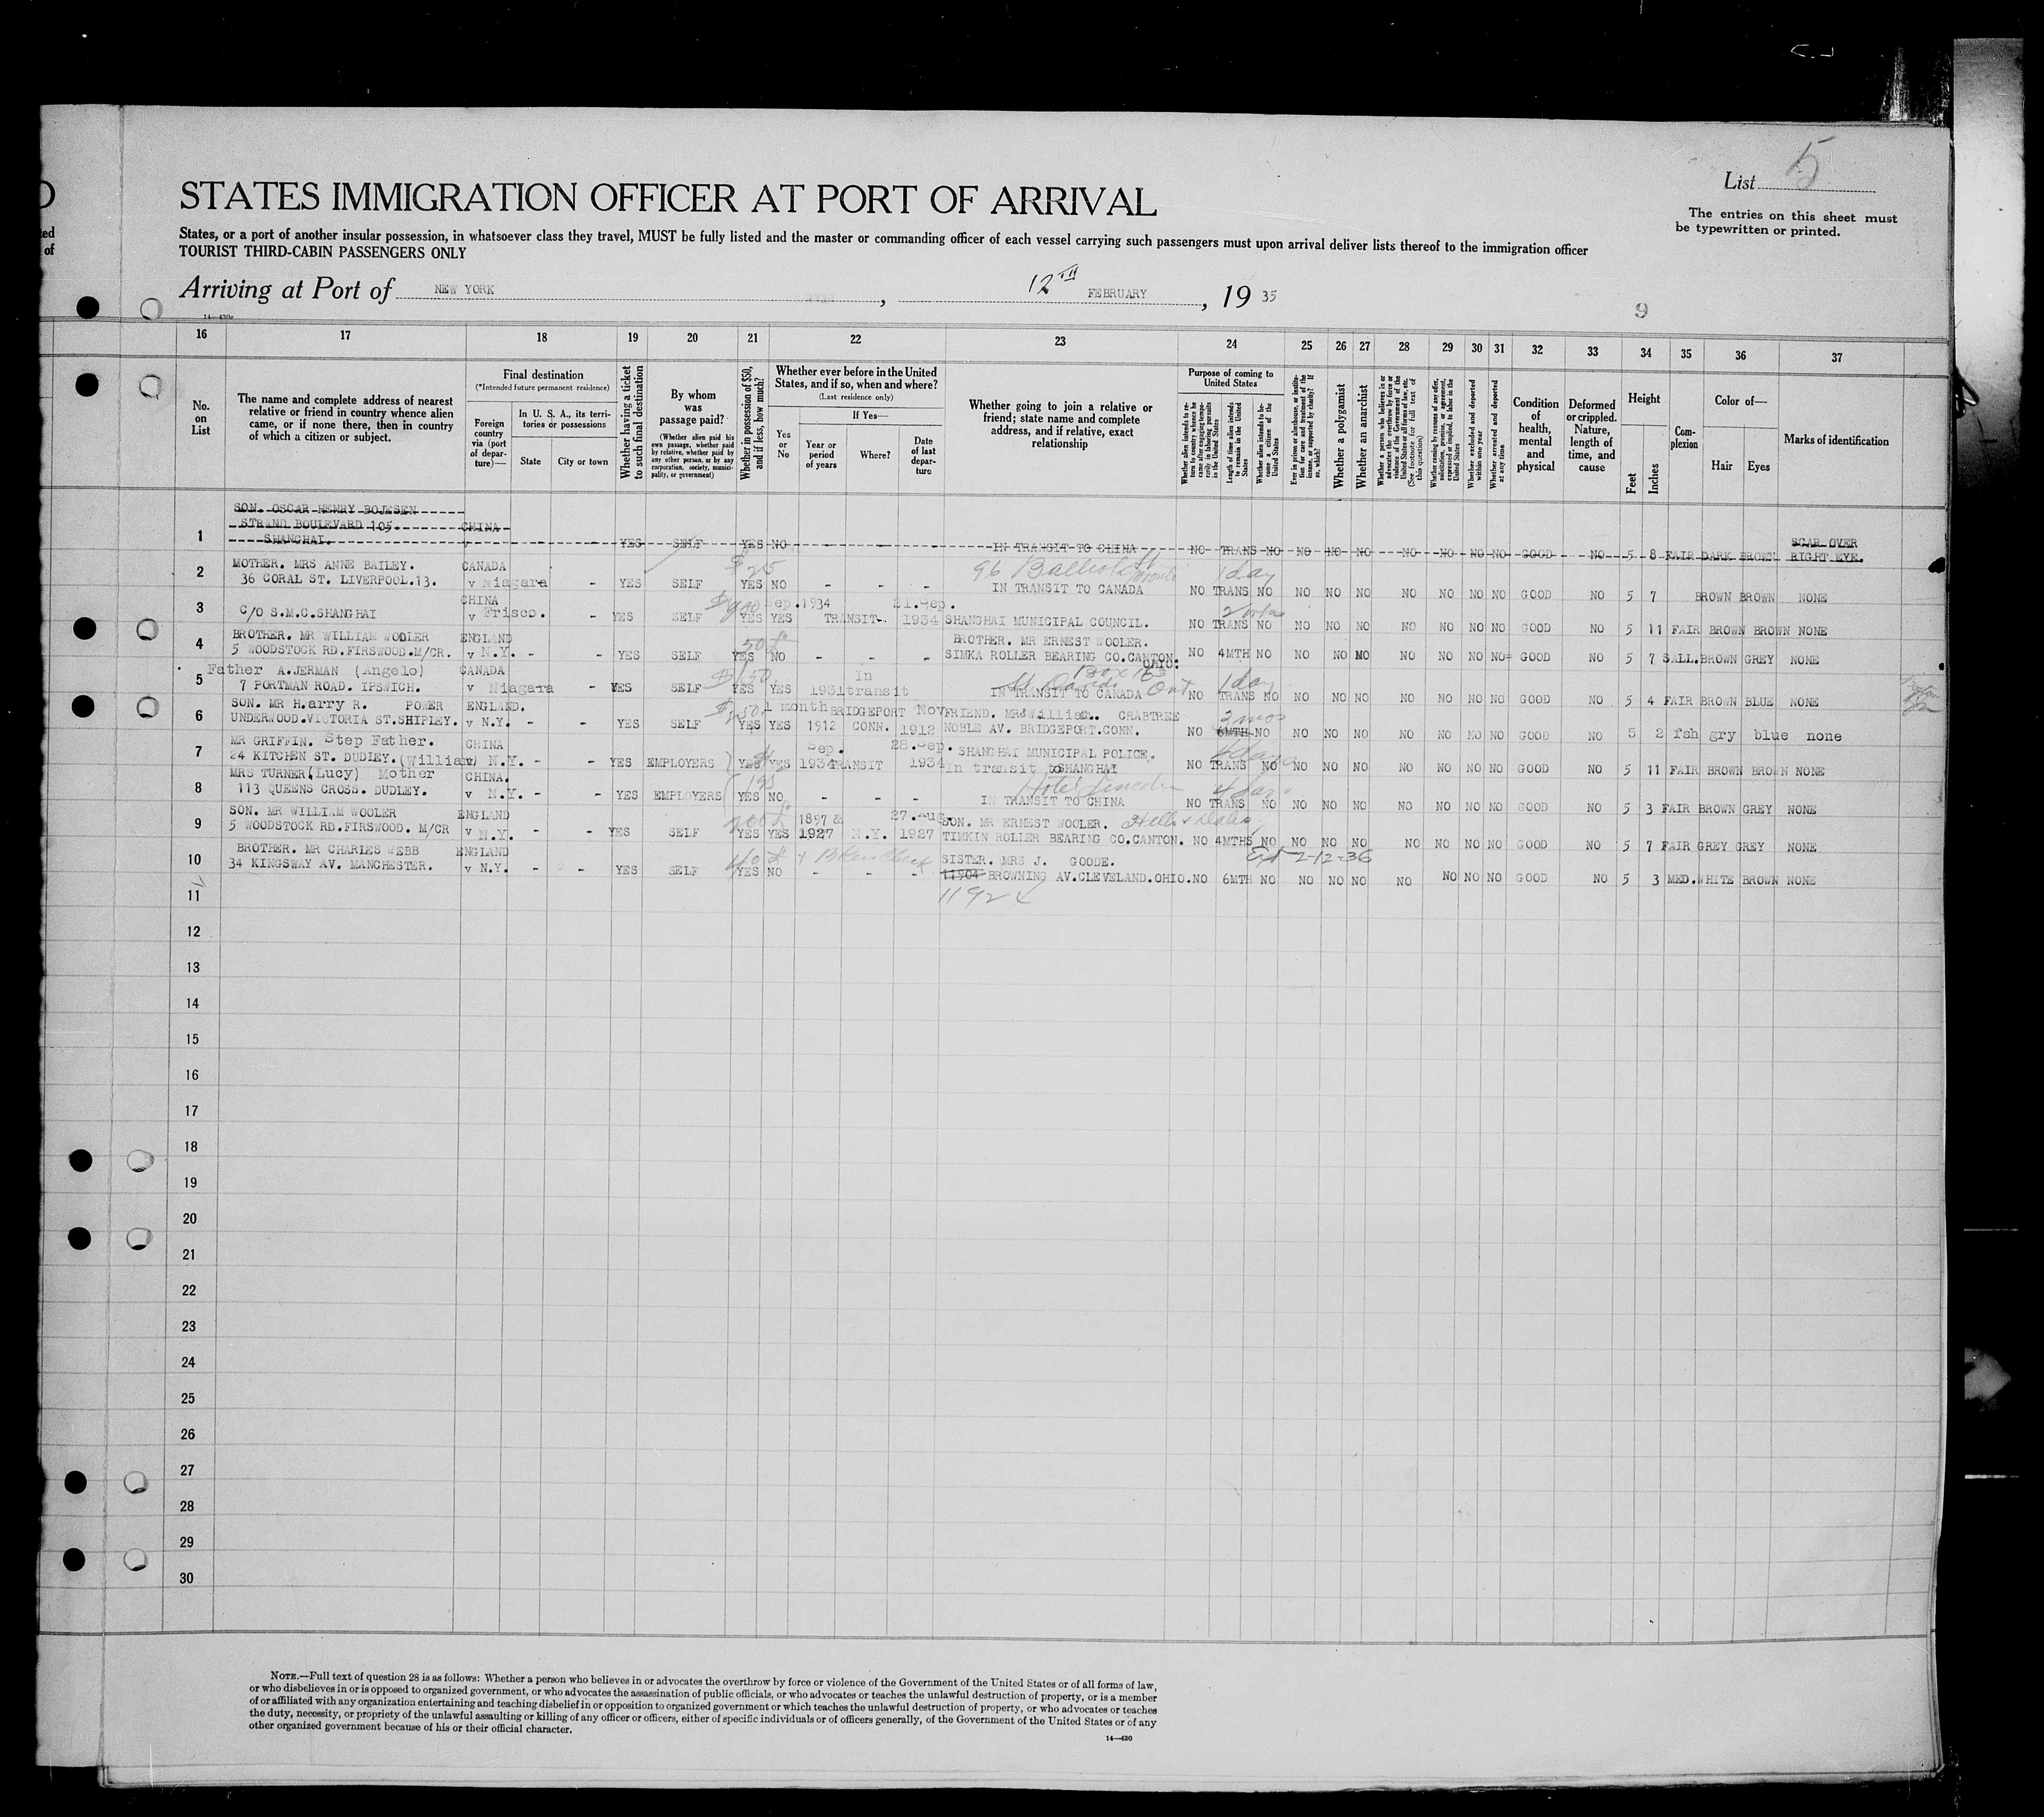 D
ted
of
List 5
STATES IMMIGRATION OFFICER AT PORT OF ARRIVAL
The entries on this sheet must
be typewritten or printed.
States, or a port of another insular possession, in whatsoever class they travel, MUST be fully listed and the master or commanding officer of each vessel carrying such passengers must upon arrival deliver lists thereof to the immigration officer
TOURIST THIRD-CABIN PASSENGERS ONLY
Arriving at Port of NEW YORK, 12TH FEBRUARY, 19 35
14—430a
9
16 17 18 19 20 21 22 23 24 25 26 27 28 29 30 31 32 33 34 35 36 37
No. on List
The name and complete address of nearest relative or friend in country whence alien came, or if none there, then in country of which a citizen or subject.
Final destination
(*Intended future permanent residence)
Foreign country via (port of departure)—
In U. S. A., its territories or possessions
State
City or town
Whether having a ticket to such final destination
By whom was passage paid?
(Whether alien paid his own passage, whether paid by relative, whether paid by any other person, or by any corporation, society, municipality, or government)
Whether in possession of $50, and if less, how much?
Whether ever before in the United States, and if so, when and where?
(Last residence only)
Yes or No
If Yes—
Year or period of years
Where?
Date of last departure
Whether going to join a relative or friend; state name and complete address, and if relative, exact relationship
Purpose of coming to United States
Whether alien intends to return to country whence he came after engaging temporarily in laboring pursuits in the United States
Length of time alien intends to remain in the United States
Whether alien intends to become a citizen of the United States
Ever in prison or almshouse, or institution for care and treatment of the insane, or supported by charity? If so, which?
Whether a polygamist
Whether an anarchist
Whether a person who believes in or advocates the overthrow by force or violence of the Government of the United States or all forms of law, etc. (See footnote for full text of this question)
Whether coming by reasons of any offer, solicitation, promise, or agreement, expressed or implied, to labor in the United States
Whether excluded and deported within one year
Whether arrested and deported at any time
Condition of health, mental and physical
Deformed or crippled. Nature, length of time, and cause
Height
Feet
Inches
Complexion
Color of—
Hair
Eyes
Marks of identification
SON. OSCAR HENRY BOJESEN
STRAND BOULEVARD 105. CHINA SCAR OVER
1 SHANGHAI. v YES SELF YES NO - - - IN TRANSIT TO CHINA NO TRANS NO NO NO NO NO NO NO NO GOOD NO 5 8 FAIR DARK BROWN RIGHT EYE.
MOTHER. MRS ANNE BAILEY. CANADA $25 96 Balliol St Toronto 1 day
2 36 CORAL ST. LIVERPOOL.13. v Niagara - YES SELF YES NO - - - IN TRANSIT TO CANADA NO TRANS NO NO NO NO NO NO NO NO GOOD NO 5 7 BROWN BROWN NONE
CHINA Sep.1934 21.Sep.
3 C/O S.M.C.SHANGHAI v Frisco. - YES SELF YES YES TRANSIT- 1934 SHANGHAI MUNICIPAL COUNCIL. NO TRANS NO NO NO NO NO NO NO NO GOOD NO 5 11 FAIR BROWN BROWN NONE
BROTHER. MR WILLIAM WOOLER ENGLAND 50£ BROTHER. MR ERNEST WOOLER.
4 5 WOODSTOCK RD.FIRSWOOD.M/CR. v N.Y. - - YES SELF YES NO - - - SIMKA ROLLER BEARING CO.CANTON OHIO. NO 4MTH NO NO NO NO NO NO NO NO GOOD NO 5 7 SALL. BROWN GREY NONE
Father A.JERMAN (Angelo) CANADA $150 In Box 163 1 day
5 7 PORTMAN ROAD. IPSWICH. v Niagara - YES SELF YES YES 1931 transit IN TRANSIT TO CANADA Ont NO TRANS NO NO NO NO NO NO NO NO GOOD NO 5 4 FAIR BROWN BLUE NONE
SON. MR Harry R. POWER ENGLAND. 1 month BRIDGEPORT Nov FRIEND. MR William. CRABTREE 3 mos
6 UNDERWOOD.VICTORIA ST.SHIPLEY. v N.Y. - - YES SELF YES YES 1912 CONN. 1912 NOBLE AV. BRIDGEPORT.CONN. NO 6MTH NO NO NO NO NO NO NO NO GOOD NO 5 2 fsh gry blue none
MR GRIFFIN. Step Father. CHINA Sep. 28.Sep. SHANGHAI MUNICIPAL POLICE.
7 24 KITCHEN ST. DUDLEY.(William) v N.Y. - - YES EMPLOYERS YES YES 1934 TRANSIT 1934 In transit to SHANGHAI NO TRANS NO NO NO NO NO NO NO NO GOOD NO 5 11 FAIR BROWN BROWN NONE
MRS TURNER(Lucy) Mother CHINA. Hotel Lincoln 4 days
8 113 QUEENS CROSS. DUDLEY. v N.Y. - - YES EMPLOYERS YES NO - - - IN TRANSIT TO CHINA NO TRANS NO NO NO NO NO NO NO NO GOOD NO 5 3 FAIR BROWN GREY NONE
SON. MR WILLIAM WOOLER ENGLAND 1897 & 27.Aug. SON. MR ERNEST WOOLER.
9 5 WOODSTOCK RD.FIRSWOOD. M/CR v N.Y. - - YES SELF YES YES 1927 N.Y. 1927 TIMKIN ROLLER BEARING CO.CANTON. NO 4MTHS NO NO NO NO NO NO NO NO GOOD NO 5 7 FAIR GREY GREY NONE
BROTHER. MR CHARLES WEBB ENGLAND SISTER. MRS J. GOODE. Ext 2-12-36
10 34 KINGSWAY AV. MANCHESTER. v N.Y. - - YES SELF YES NO - - - 11904 BROWNING AV.CLEVELAND.OHIO. NO 6MTH NO NO NO NO NO NO NO NO GOOD NO 5 3 MED. WHITE BROWN NONE
11 11924
12
13
14
15
16
17
18
19
20
21
22
23
24
25
26
27
28
29
30
NOTE.—Full text of question 28 is as follows: Whether a person who believes in or advocates the overthrow by force or violence of the Government of the United States or of all forms of law,
or who disbelieves in or is opposed to organized government, or who advocates the assassination of public officials, or who advocates or teaches the unlawful destruction of property, or is a member
of or affiliated with any organization entertaining and teaching disbelief in or opposition to organized government or which teaches the unlawful destruction of property, or who advocates or teaches
the duty, necessity, or propriety of the unlawful assaulting or killing of any officer or officers, either of specific individuals or of officers generally, of the Government of the United States or of any
other organized government because of his or their official character.
14—430